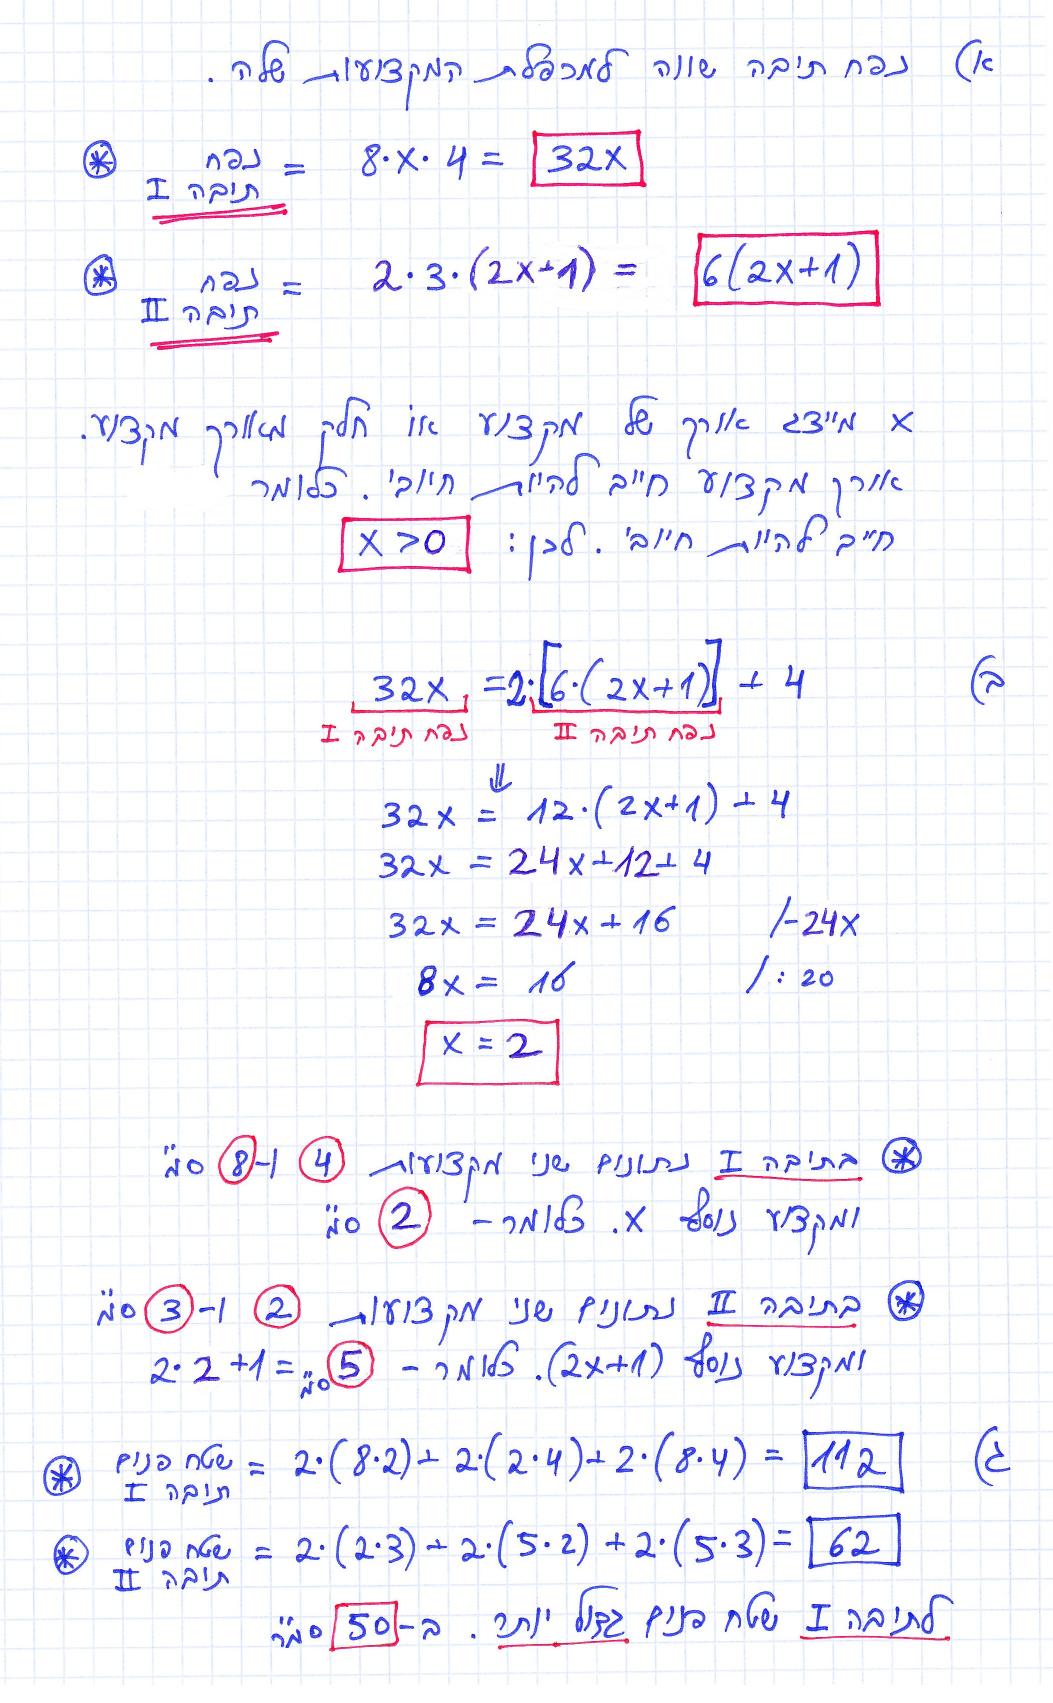 א) נפח תיבה שווה למכפלת המקצועות שלה.
נפח תיבה I = 8·x·4 = 32x
נפח תיבה II = 2·3·(2x+1) = 6(2x+1)
x מייצג אורך של מקצוע או חלק מאורך מקצוע.
אורך מקצוע חייב להיות חיובי. כלומר
חייב להיות חיובי. לכן: x>0
ב) 32x = 2·[6·(2x+1)] + 4
נפח תיבה I נפח תיבה II
⇓
32x = 12·(2x+1) + 4
32x = 24x+12+4
32x = 24x+16 /-24x
8x = 16 /:20
x = 2
בתיבה I נתונים שני מקצועות 4 ו-8 ס"מ
ומקצוע נוסף x. כלומר - 2 ס"מ
בתיבה II נתונים שני מקצועות 2 ו-3 ס"מ
ומקצוע נוסף (2x+1). כלומר - 2·2+1=5 ס"מ
ג) שטח פנים תיבה I = 2·(8·2)+2·(2·4)+2·(8·4) = 112
שטח פנים תיבה II = 2·(2·3)+2·(5·2)+2·(5·3) = 62
לתיבה I שטח פנים גדול יותר. ב-50 סמ"ר